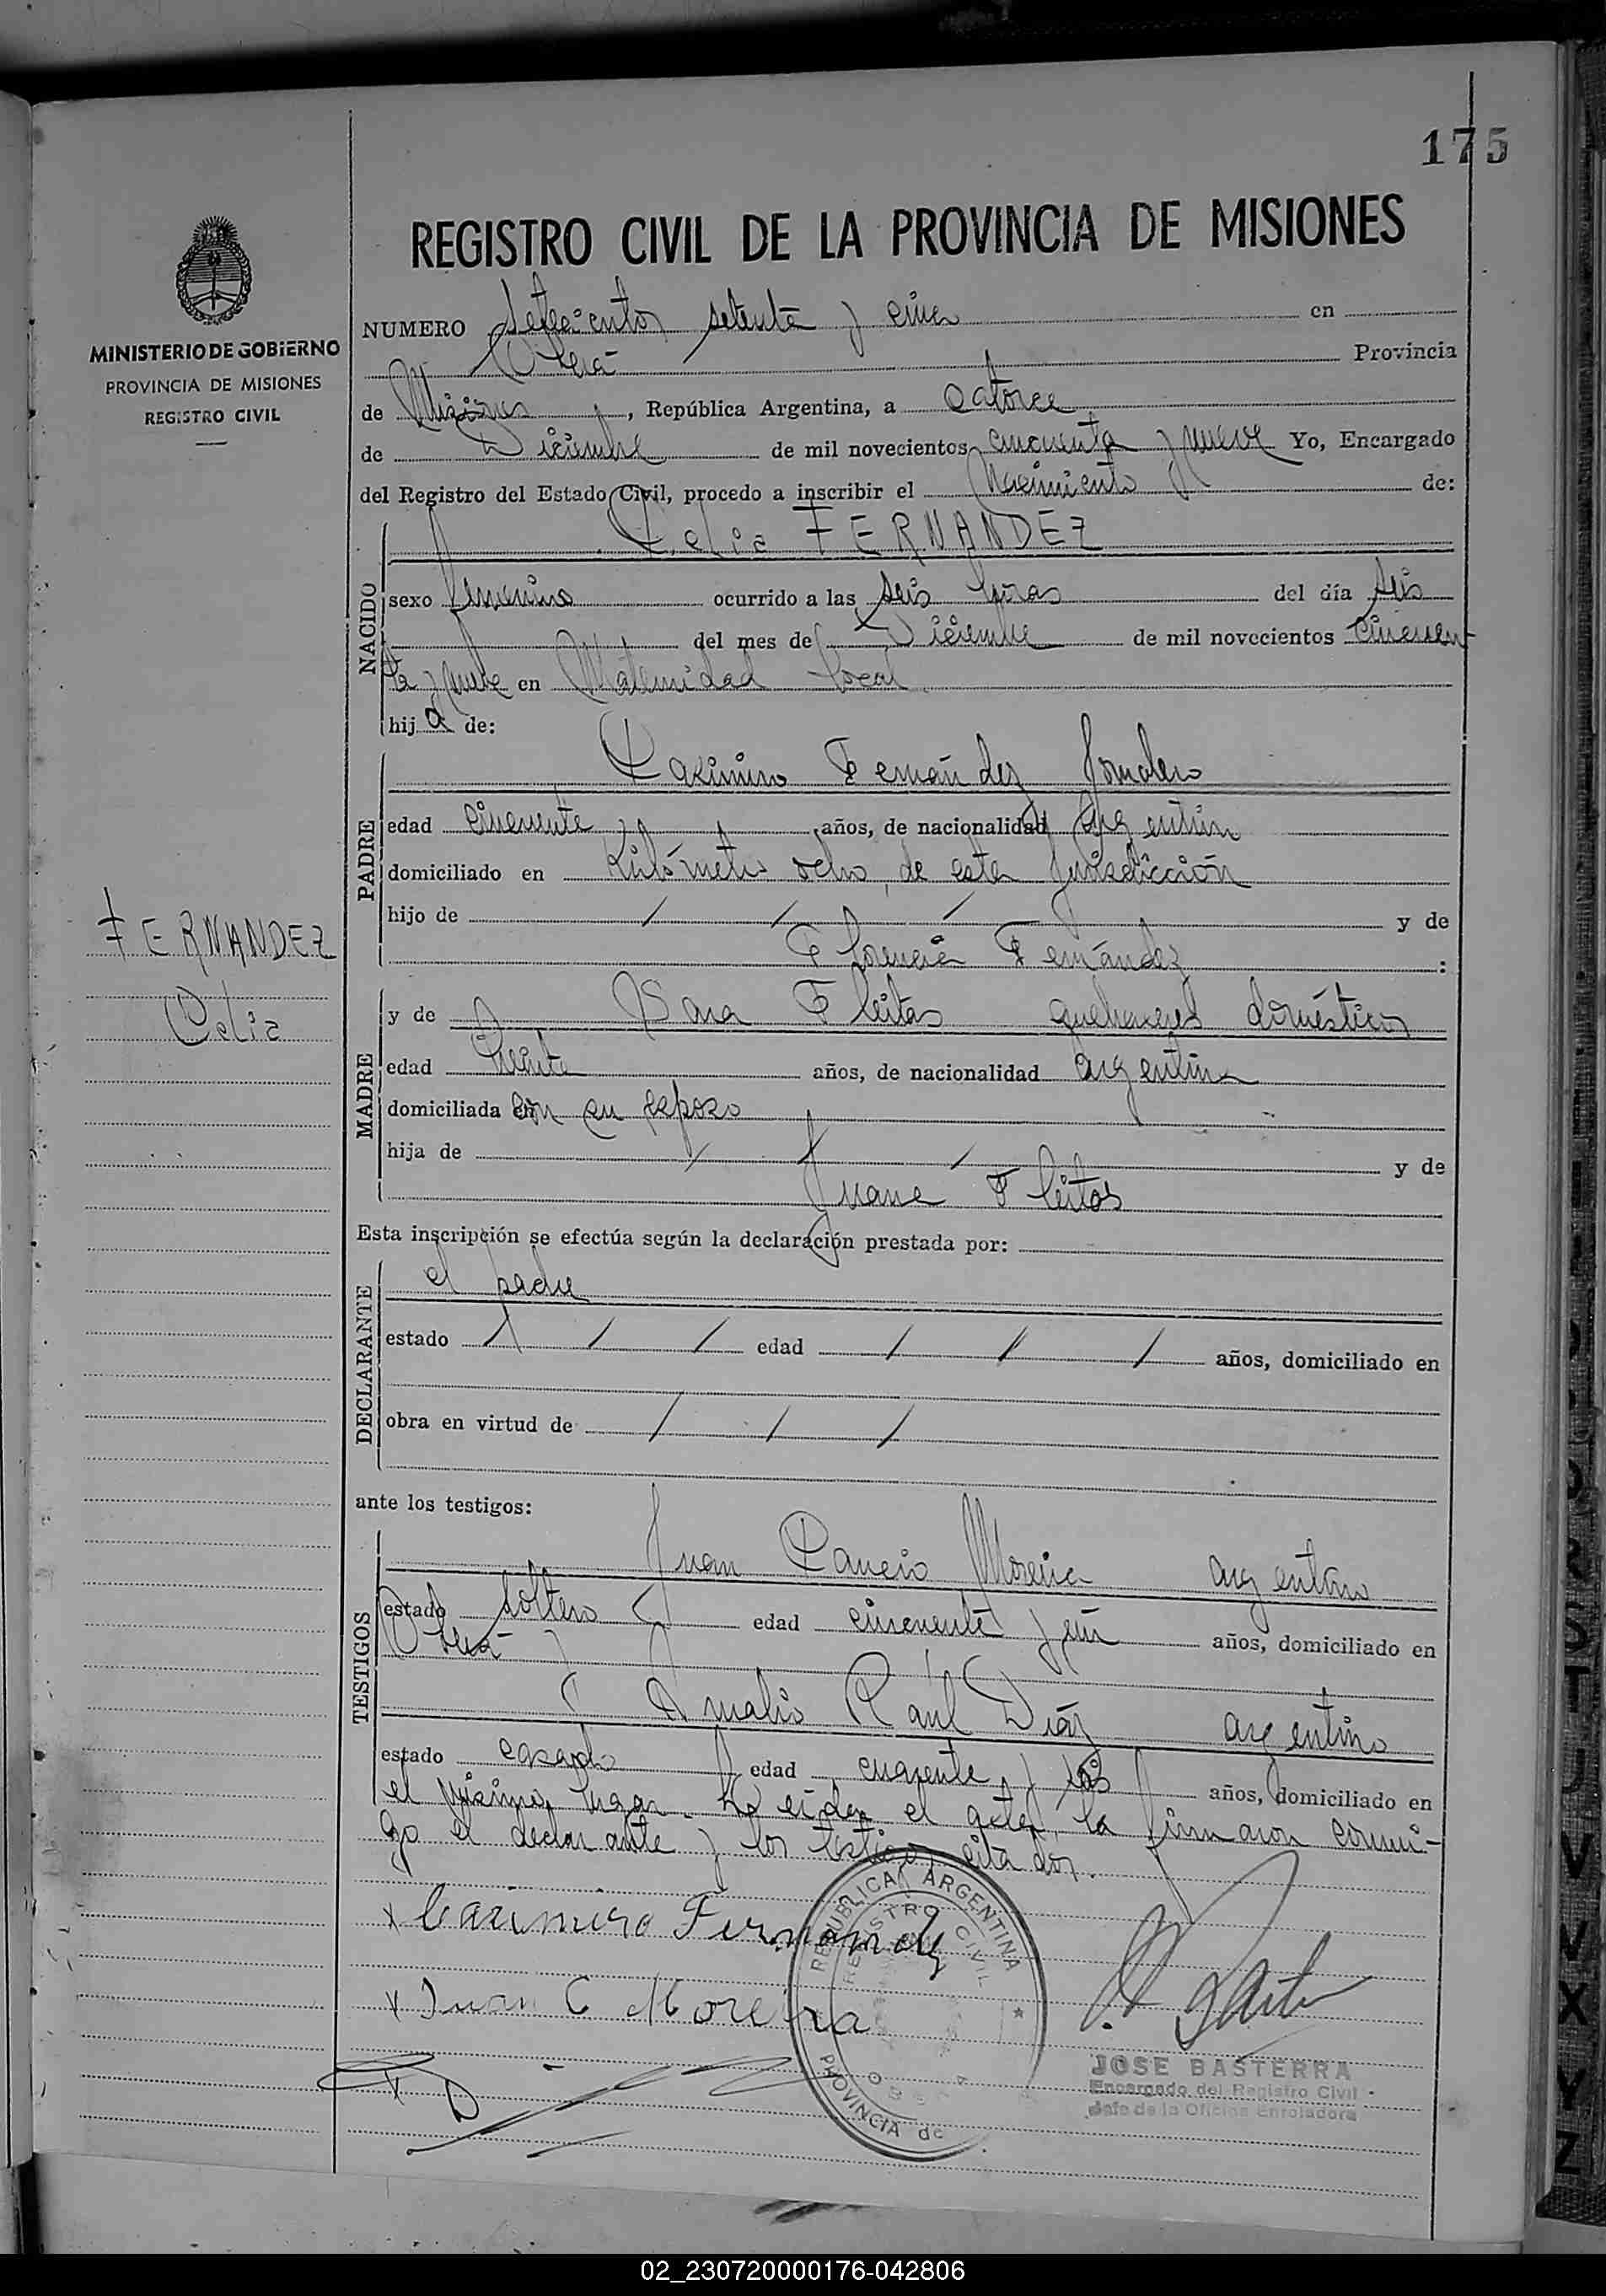 175
REGISTRO CIVIL DE LA PROVINCIA DE MISIONES
MINISTERIO DE GOBIERNO
PROVINCIA DE MISIONES
REGISTRO CIVIL
NUMERO Setecientos setenta y cinco en
Oberá Provincia
de Misiones, República Argentina, a catorce
de Diciembre de mil novecientos cincuenta y nueve Yo, Encargado
del Registro del Estado Civil, procedo a inscribir el Nacimiento de:
Celia FERNANDEZ
NACIDO
sexo femenino ocurrido a las seis horas del día seis
del mes de Diciembre de mil novecientos cincuen
ta y nueve en Maternidad local
hija de:
PADRE
Casimiro Fernández Jornalero
edad cincuenta años, de nacionalidad argentina
domiciliado en Kilómetro ocho, de esta jurisdicción
hijo de / / / y de
Florencia Fernández :
FERNANDEZ
Celia
MADRE
y de Sara Fleitas quehaceres domésticos
edad años, de nacionalidad argentina
domiciliada en con su esposo
hija de / / / y de
Juana Fleitas
Esta inscripción se efectúa según la declaración prestada por:
DECLARANTE
el padre
estado / / / edad / / / años, domiciliado en
obra en virtud de / / /
ante los testigos:
TESTIGOS
Juan Cancio Moreira argentino
estado soltero edad cincuenta y un años, domiciliado en
Oberá y
Amalio Raúl Díaz argentino
estado casado edad cuarenta y años, domiciliado en
el mismo lugar. Leída el acta, la firmaron conmi-
go el declarante y los testigos citados.
x Casimiro Fernandez
x Juan C Moreira
REPUBLICA ARGENTINA
REGISTRO CIVIL
OBERA
PROVINCIA de
JOSE BASTERRA
Encargado del Registro Civil
Jefe de la Oficina Enroladora
V
X
Y
Z
02_230720000176-042806